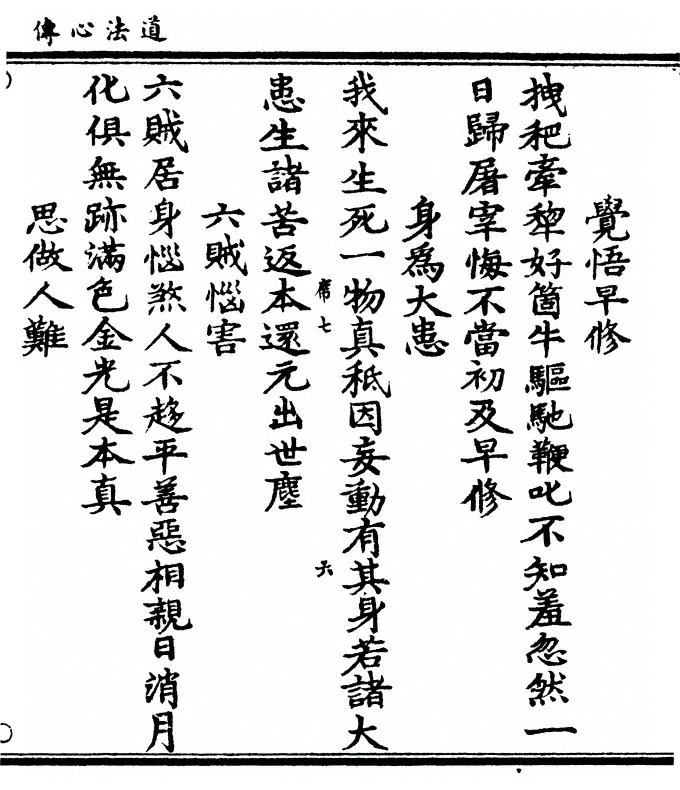 道法心傳
覺悟早修
拽耙牽犂好箇牛驅馳鞭叱不知羞忽然一
日歸屠宰悔不當初及早修
身爲大患
我來生死一物真秪因妄動有其身若諸大
患生諸苦返本還元出世塵
席七
六
六賊惱害
六賊居身惱煞人不趍平善惡相親日消月
化俱無跡滿色金光是本真
思做人難